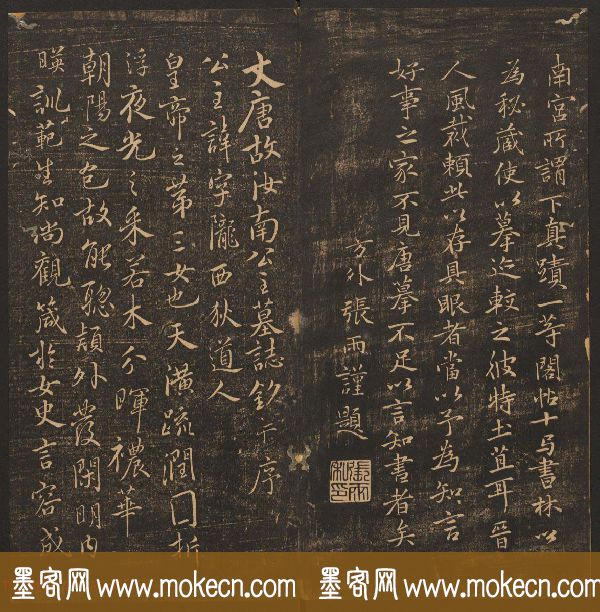 南宮所謂下真蹟一等閣帖十与書林以
為秘藏使以摹迹較之彼特土苴耳晉
人風裁賴此以存具眼者當以予為知言
好事之家不見唐摹不足以言知書者矣
方外張雨謹題
張雨私印
大唐故汝南公主墓誌銘并序
公主諱字隴西狄道人
皇帝之第三女也天潢疏潤囗折
浮夜光之采若木分暉穠華
朝陽之色故能聰穎外發閑明内
暎訓範生知尚觀箴於女史言容成
墨客网 www.mokecn.com 墨客网 www.mokecn.com